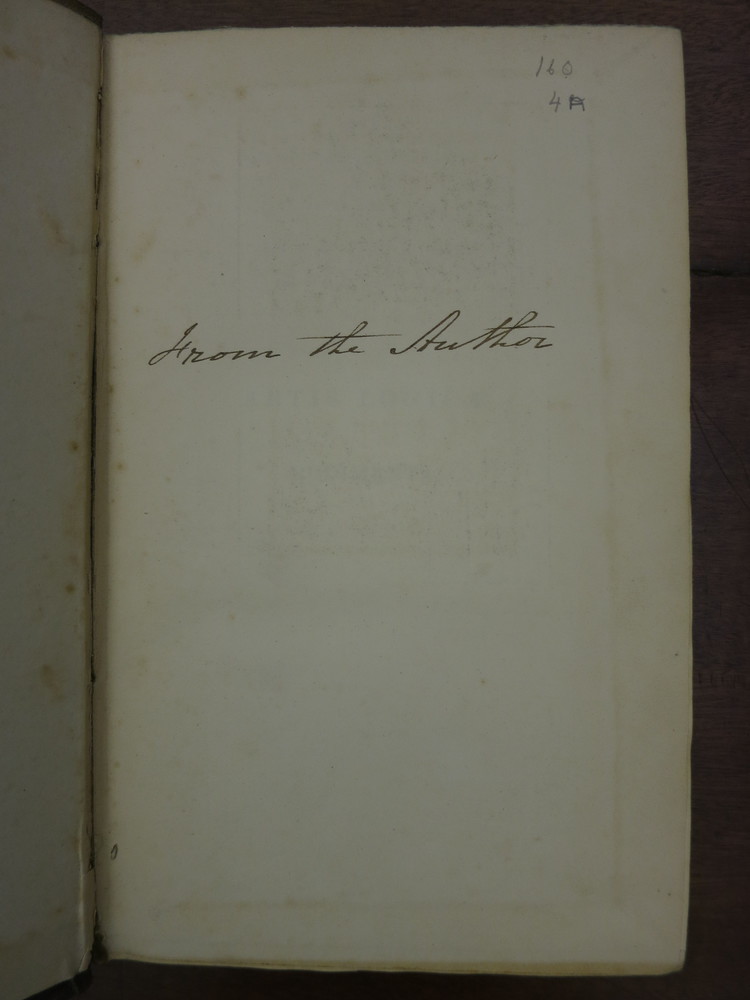 160
4
From the Author